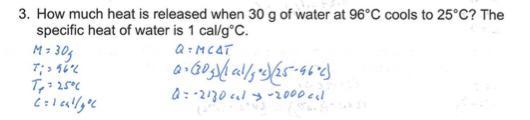 3. How much heat is released when 30 g of water at 96°C cools to 25°C? The
specific heat of water is 1 cal/g°C.
M = 30g
Ti = 96°C
Tf = 25°C
C = 1 cal/g°C
Q = MCΔT
Q = (30g)(1 cal/g°C)(25-96°C)
Q = -2130 cal → -2000 cal